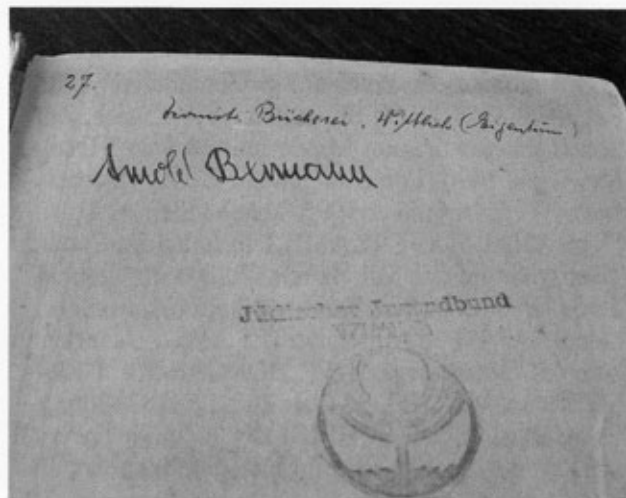 27.
Bücherei, Wittlich (Eigentum)
Arnold Bermann
Jüdischer Jugendbund